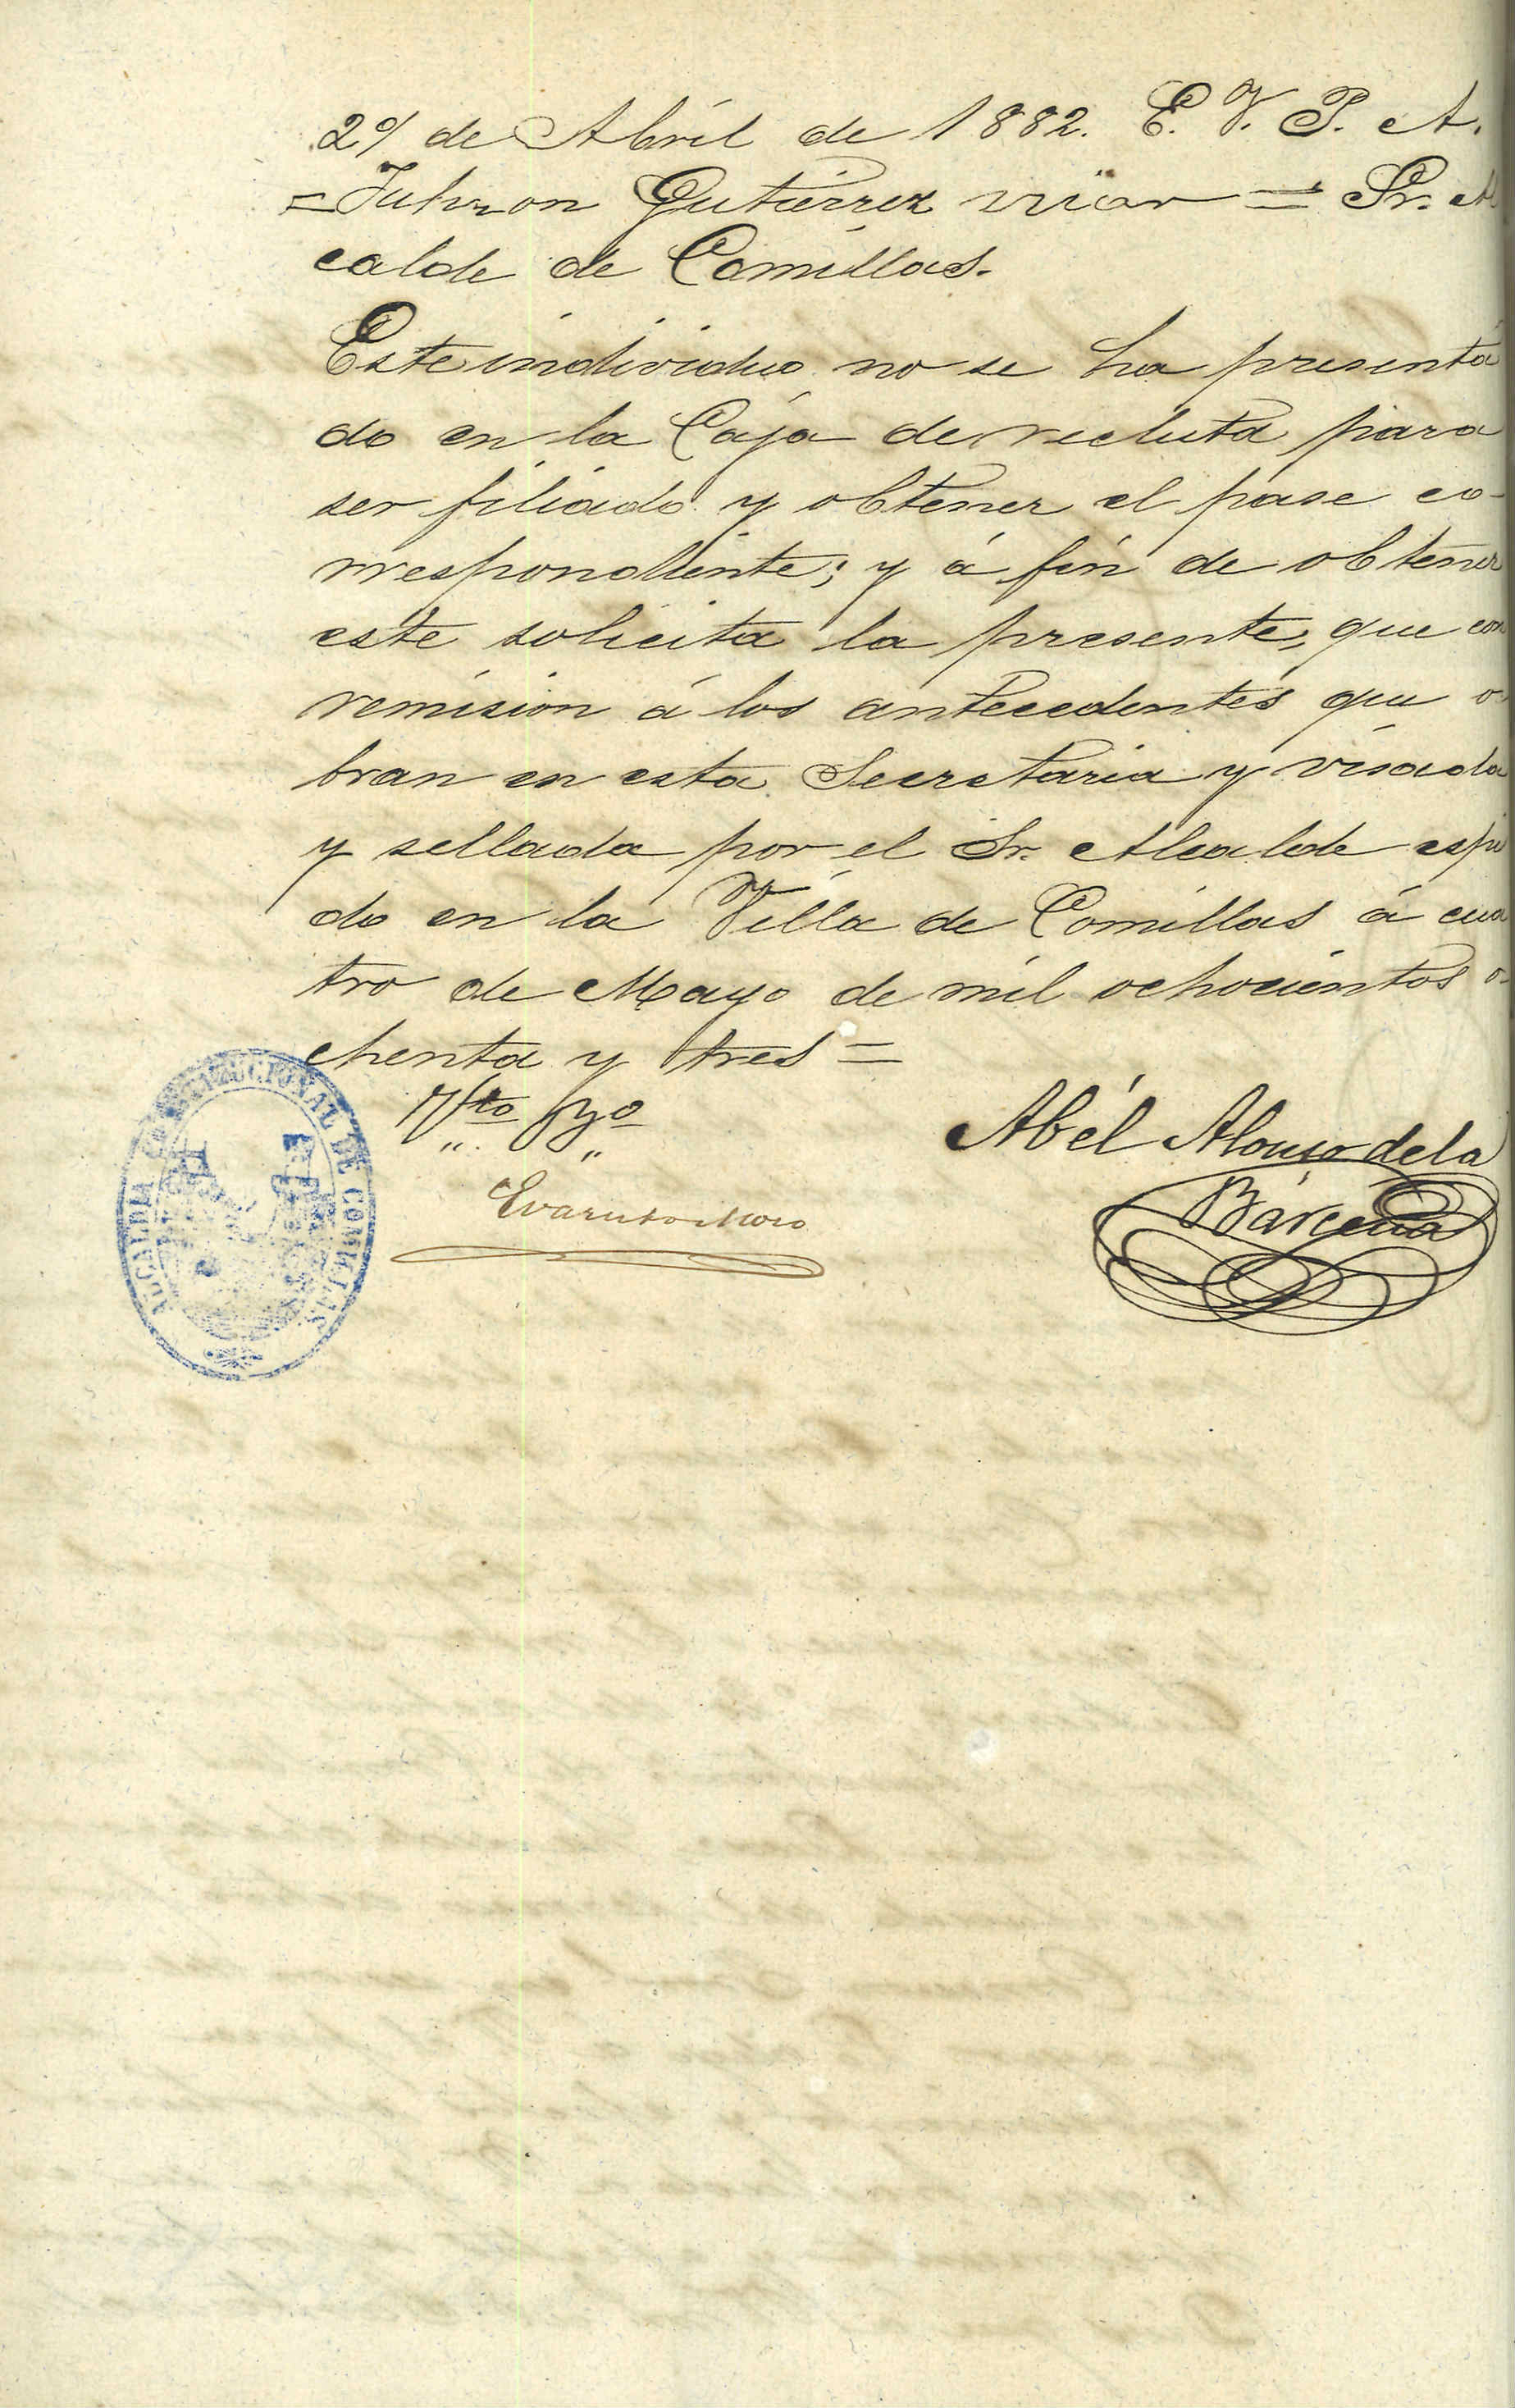 29 de Abril de 1882. E. V. P. A.
= Gutierrez = Sr. Al
calde de Comillas.
Este individuo no se ha presenta
do en la Caja de recluta para
ser filiado y obtener el pase co-
rrespondiente; y á fin de obtener
este solicita la presente, que con
remision á los antecedentes que o-
bran en esta Secretaria y visada
y sellada por el Sr. Alcalde espi
do en la Villa de Comillas á cua
tro de Mayo de mil ochocientos o-
chenta y tres =
Vto Bno
Abél Alonso de la
Bárcena
Evaristo Moro
ALCALDIA CONSTITUCIONAL DE COMILLAS